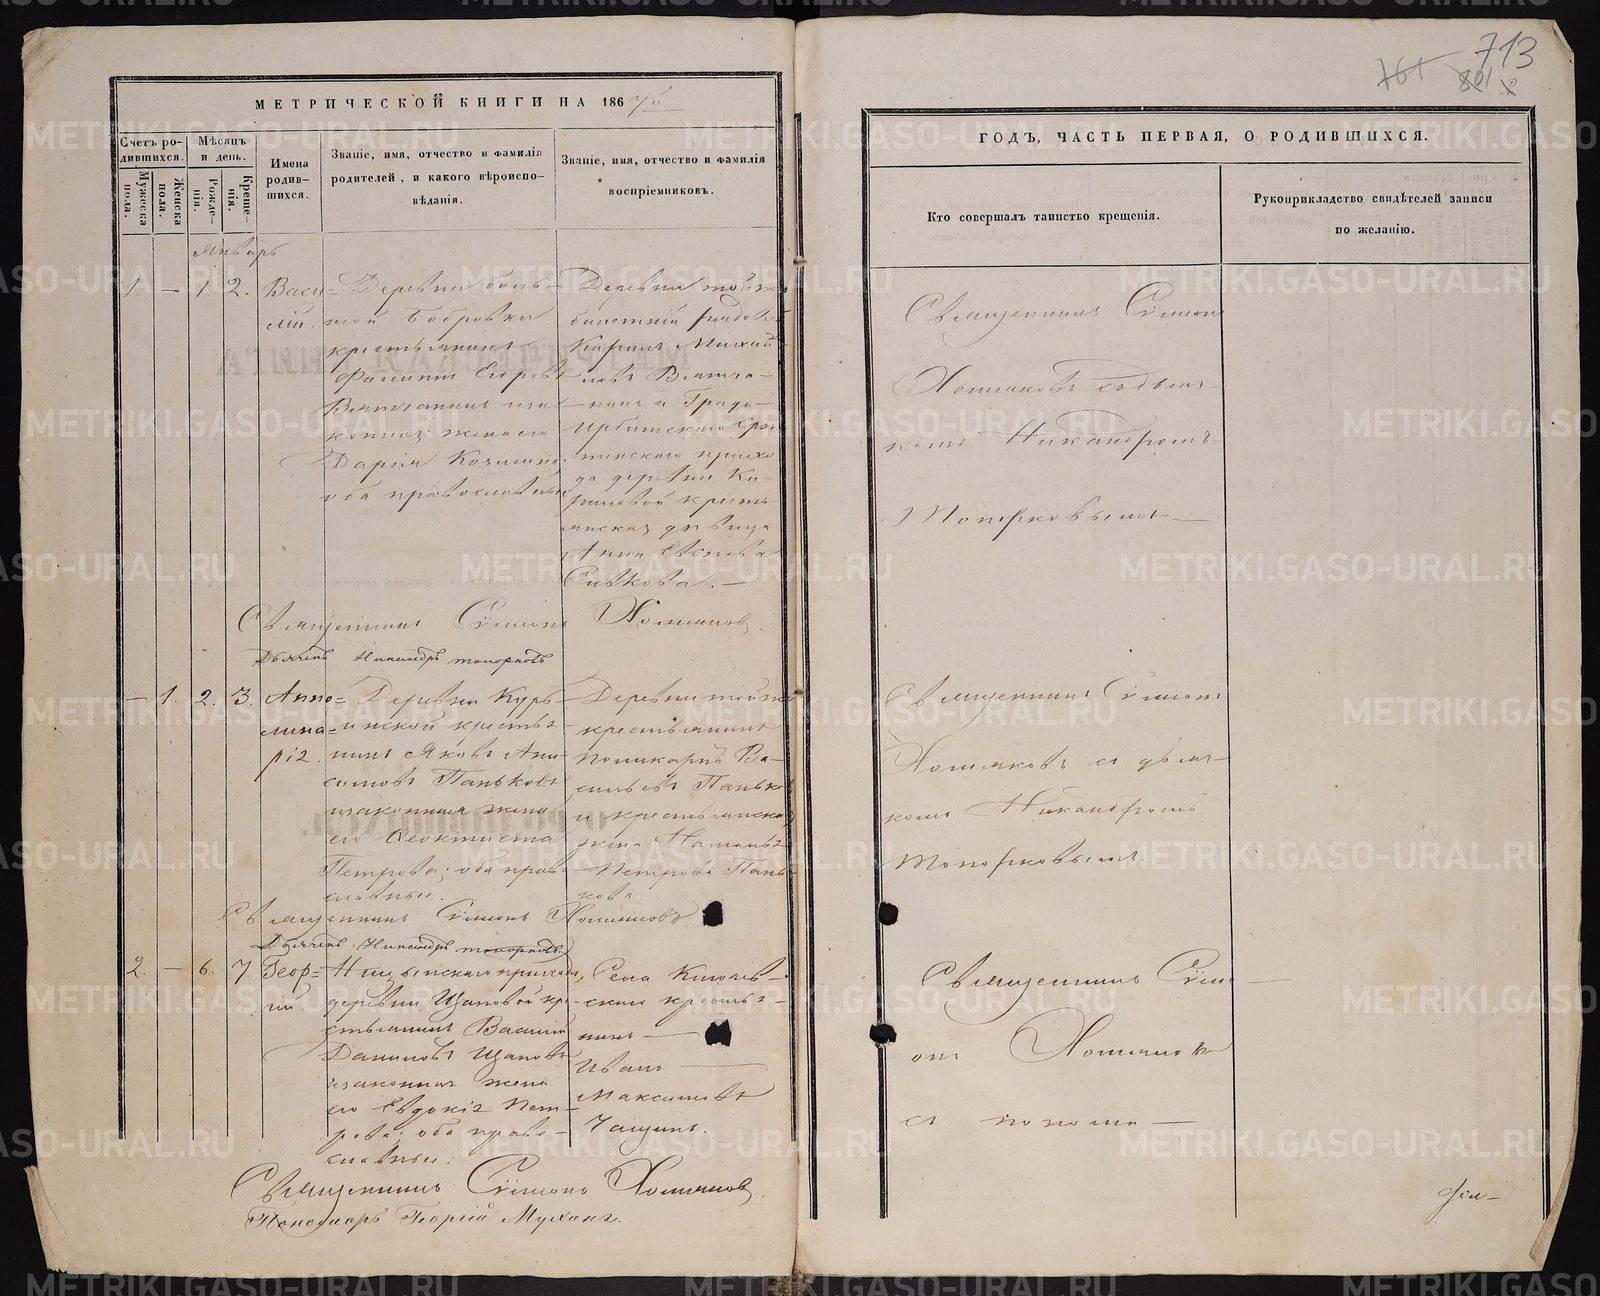 713
761
801
МЕТРИЧЕСКОЙ КНИГИ НА 1867й
Счетъ ро-
дившихся.
Мужеска
пола.
Женска
пола.
Мѣсяцъ
и день.
Рожде-
нія.
Креще-
нія.
Имена
родив-
шихся.
Званіе, имя, отчество и фамилія
родителей, и какого вѣроиспо-
вѣданія.
Званіе, имя, отчество и фамилія
воспріемниковъ.
Январь
1. — 1. 2.
Васи=
лій.
Деревни боль-
шой Бобровки
крестьянинъ
Филиппъ Егоровъ
Вятчанинъ и за
конная жена его
Дарія
оба православные
Деревни тойже
билетный рядовой
Карпъ Михай-
ловъ Вятча-
нинъ и Градо-
Ирбитскаго Срѣ
тенскаго прихо
да деревни Ки-
риловой кресть
янская дѣвица
Анна
Сивкова. —
Священникъ Сѵмеонъ Хомяковъ.
Дьячекъ Никандръ Топорковъ
— 1. 2. 3.
Апол=
лина=
рія.
Деревни Курь-
инской крестья
нинъ Яковъ Ани-
симовъ Паньковъ
и законная жена
его Ѳеоктиста
Петрова; оба право
славные.
Деревни тойже
крестьянинъ
Поликарпъ Ва-
сильевъ Паньковъ
и крестьянская
жена Наталья
Петрова Пань-
кова.
Священникъ Сѵмеонъ Хомяковъ
Дьячекъ Никандръ Топорковъ
2. — 6. 7.
Геор=
гій.
Ницынскаго прихода,
деревни Щаповой кре-
стьянинъ Василій
Даниловъ Щаповъ
и законная жена
его Евдокія Пет-
рова; оба право-
славные.
Села Ключев-
скаго крестья-
нинъ —
Иванъ —
Максимовъ
Чащинъ.
Священникъ Сѵмеонъ Хомяковъ.
Пономарь Георгій Мухинъ.
ГОДЪ, ЧАСТЬ ПЕРВАЯ, О РОДИВШИХСЯ.
Кто совершалъ таинство крещенія.
Рукоприкладство свидѣтелей записи
по желанію.
Священникъ Сѵмеонъ
Хомяковъ съ дьяч-
комъ Никандромъ
Топорковымъ —
Священникъ Сѵмеонъ
Хомяковъ съ дьяч-
комъ Никандромъ
Топорковымъ.
Священникъ Сѵме-
онъ Хомяковъ
съ понома —
METRIKI.GASO-URAL.RU